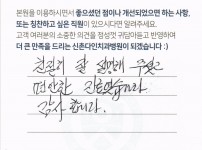 본원을 이용하시면서 좋으셨던 점이나 개선되었으면 하는 사항,
또는 칭찬하고 싶은 직원이 있으시다면 알려주세요.
고객 여러분의 소중한 의견을 정성껏 귀담아듣고 반영하여
더 큰 만족을 드리는 신촌다인치과병원이 되겠습니다 :)
친절히 잘 설명해 주셨고
편안한 진료였습니다
감사합니다.